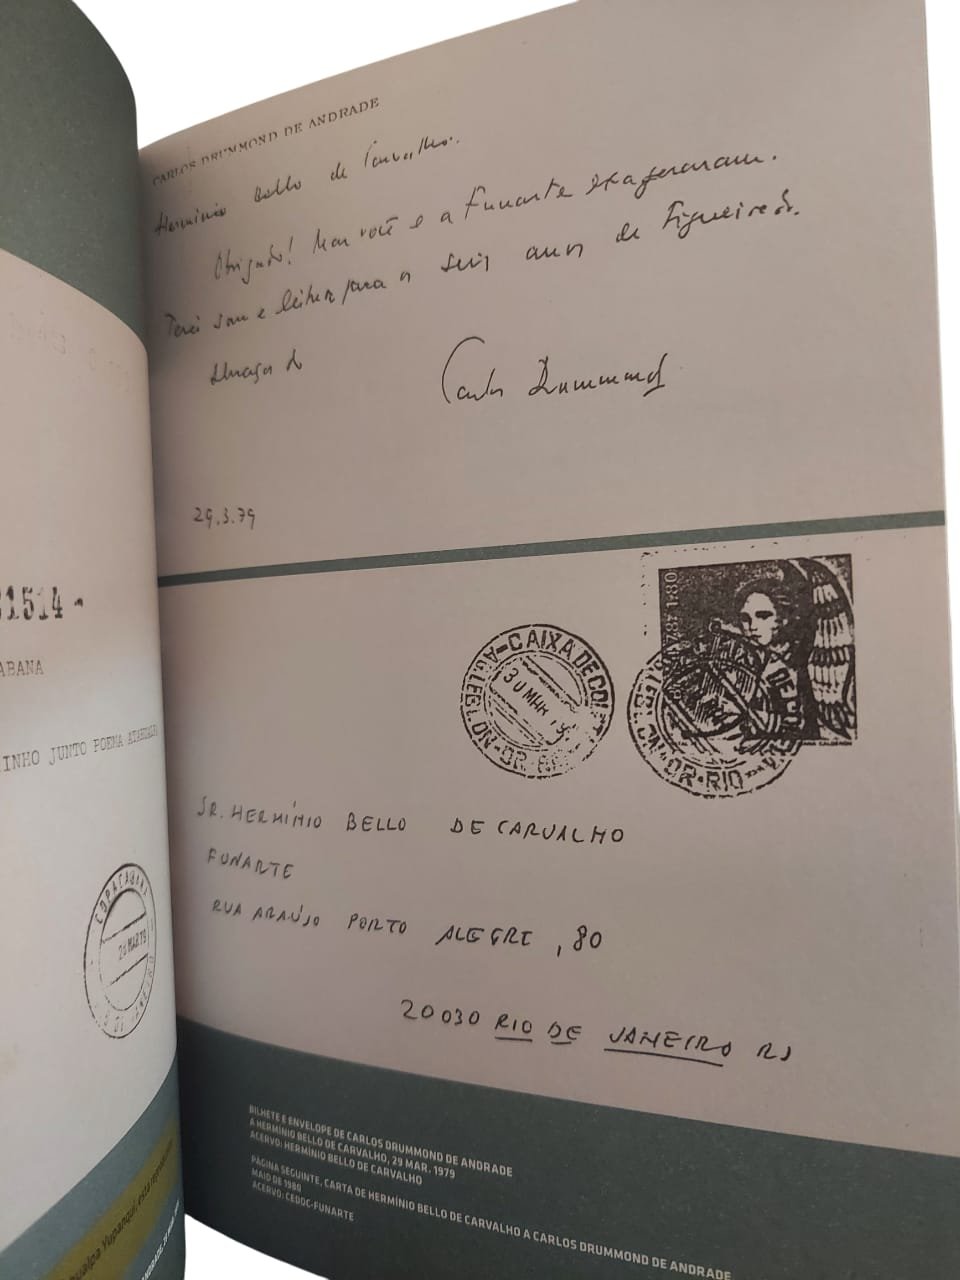 1514-
ABANA
INHO JUNTO POEMA
COPACABANA
DE JANEIRO
CARLOS DRUMMOND DE ANDRADE
Hermínio Bello de Carvalho.
Obrigado! Mas você e a Funarte exageraram.
Terei som e leitura para os seis anos de Figueiredo.
Abraço do
Carlos Drummond
29.3.79
CAIXA DE COLETA
30 MAR
SR. HERMÍNIO BELLO DE CARVALHO
FUNARTE
RUA ARAÚJO PORTO ALEGRE, 80
20030 RIO DE JANEIRO RJ
BILHETE E ENVELOPE DE CARLOS DRUMMOND DE ANDRADE
A HERMÍNIO BELLO DE CARVALHO, 29 MAR. 1979
ACERVO: HERMÍNIO BELLO DE CARVALHO
PÁGINA SEGUINTE, CARTA DE HERMÍNIO BELLO DE CARVALHO A CARLOS DRUMMOND DE ANDRADE
MAIO DE 1980
ACERVO: CEDOC-FUNARTE